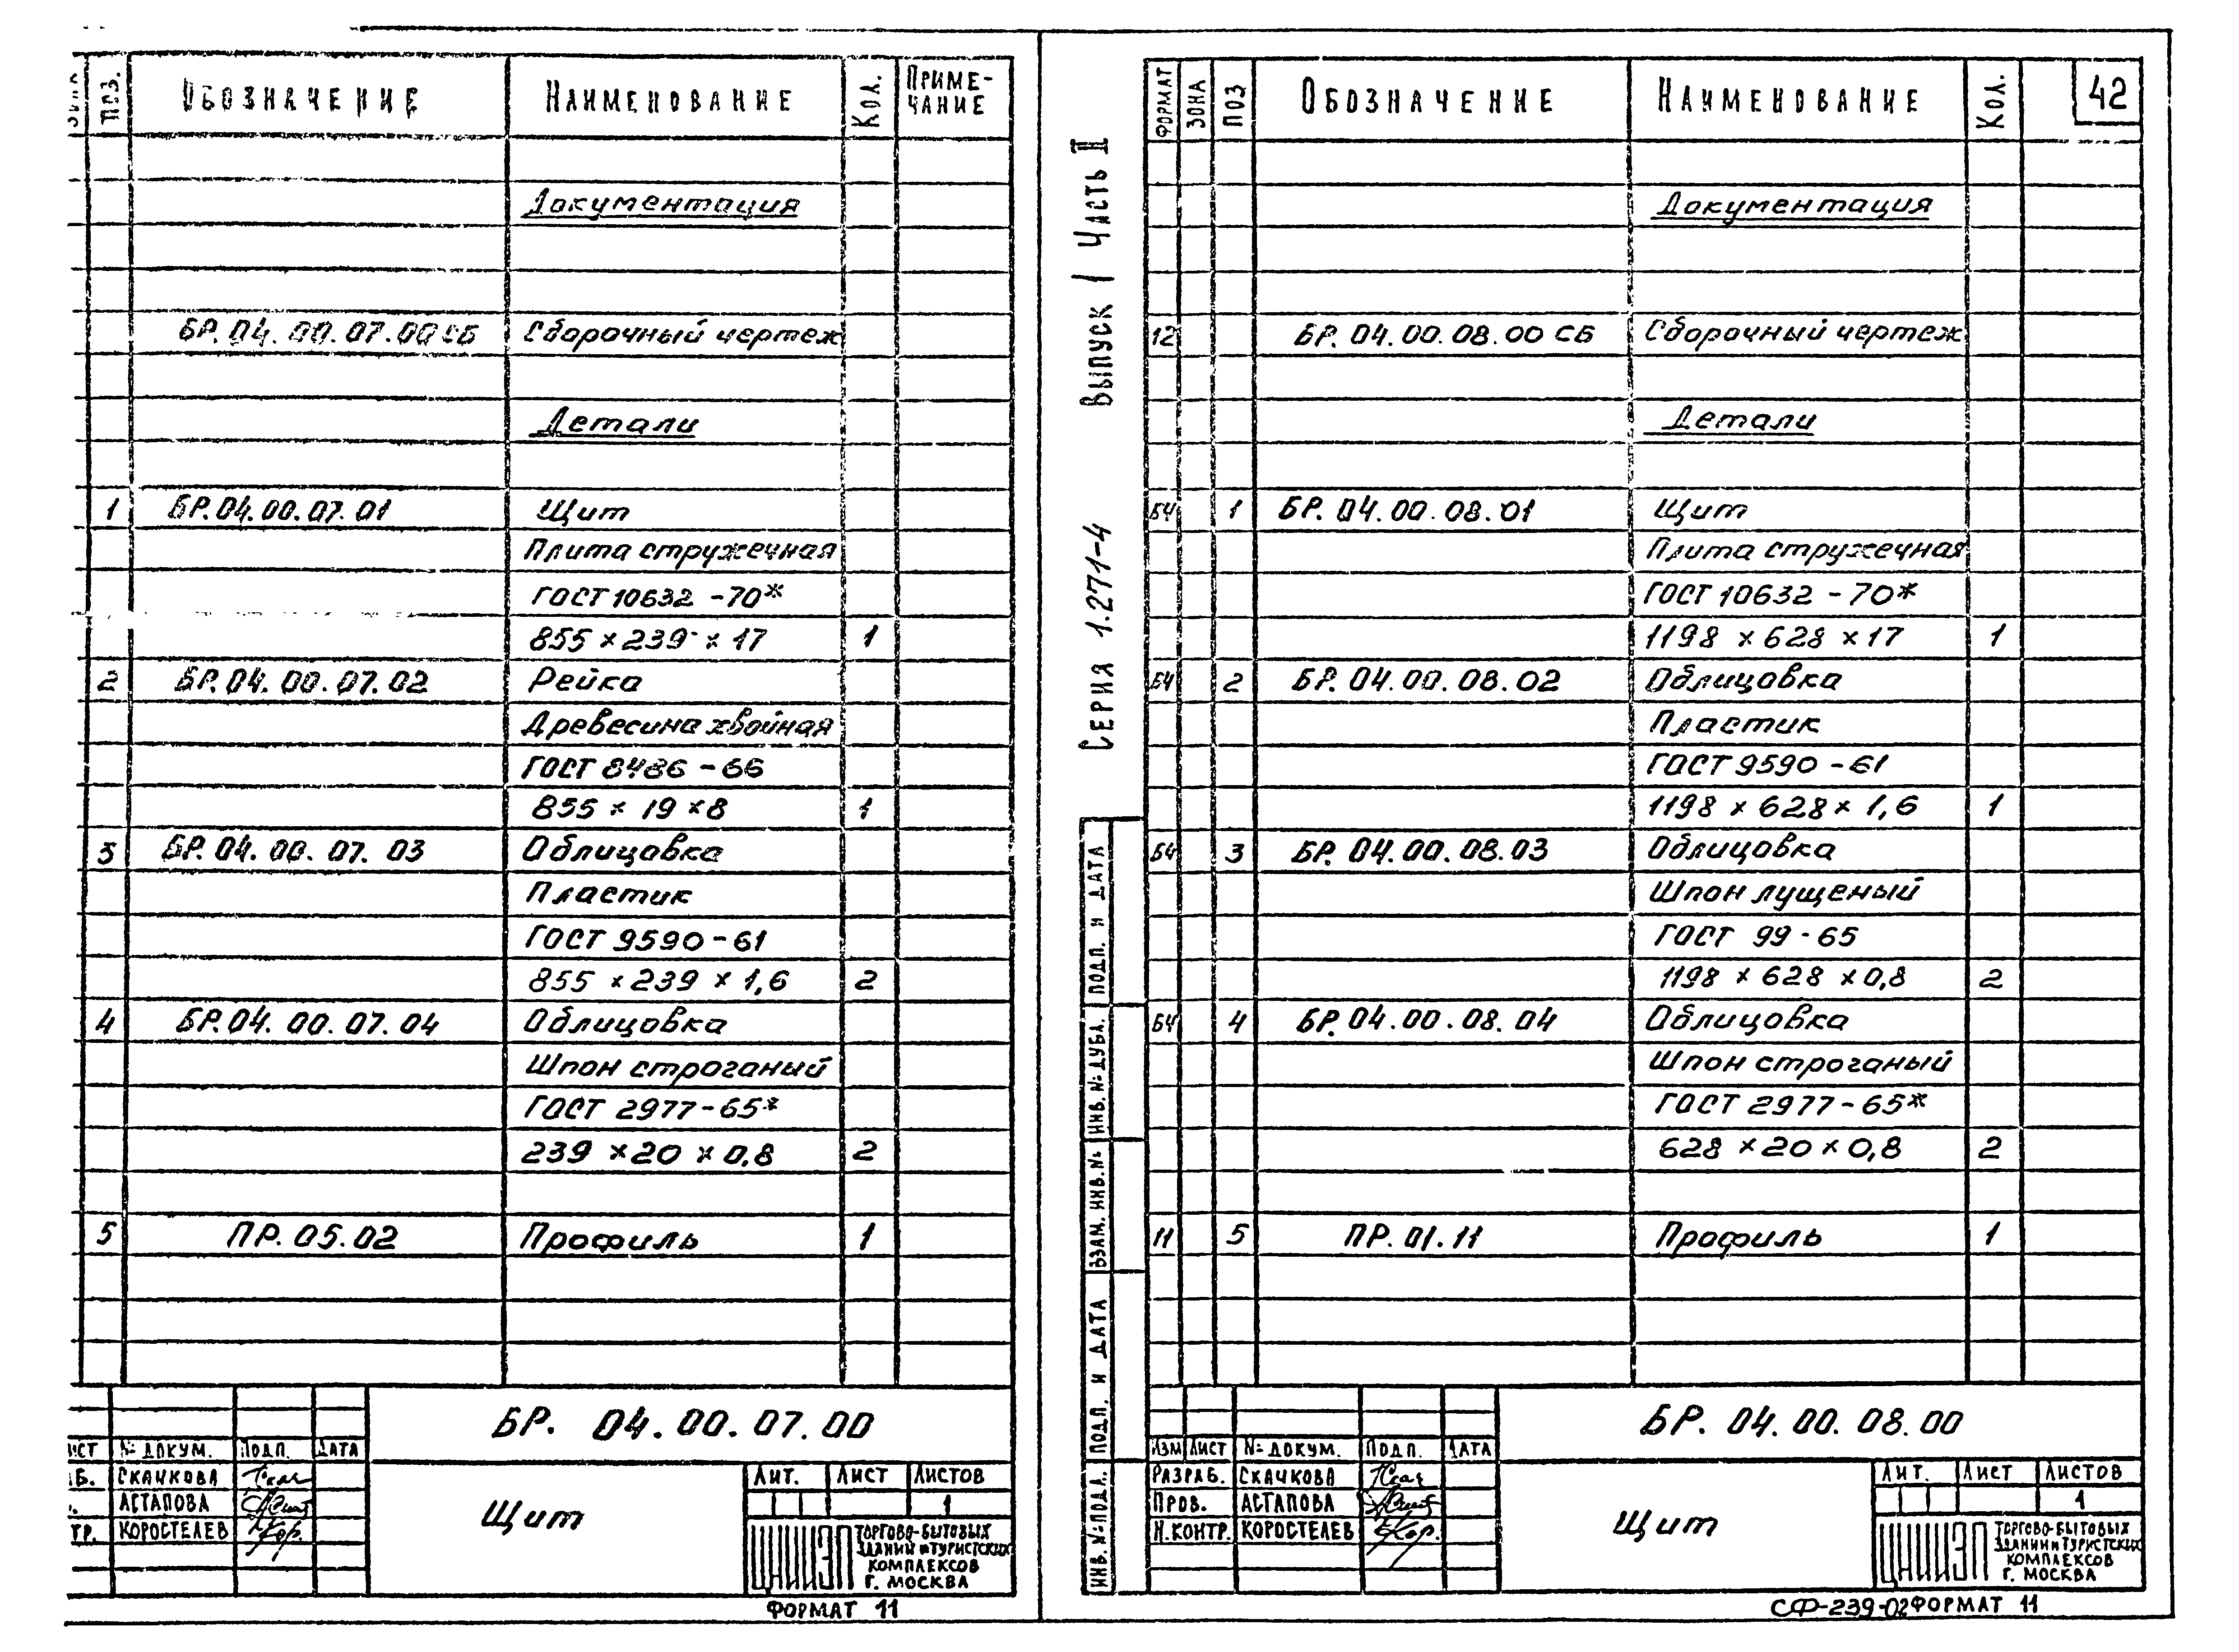 ПОЗ. ОБОЗНАЧЕНИЕ НАИМЕНОВАНИЕ КОЛ. ПРИМЕ-
ЧАНИЕ
Документация
БР.04.00.07.00СБ Сборочный чертеж
Детали
1 БР.04.00.07.01 Щит
Плита стружечная
ГОСТ 10632-70*
855 × 239 × 17 1
2 БР.04.00.07.02 Рейка
Древесина хвойная
ГОСТ 8486-66
855 × 19 × 8 1
3 БР.04.00.07.03 Облицовка
Пластик
ГОСТ 9590-61
855 × 239 × 1,6 2
4 БР.04.00.07.04 Облицовка
Шпон строганый
ГОСТ 2977-65*
239 × 20 × 0,8 2
5 ПР.05.02 Профиль 1
БР. 04.00.07.00
ИСТ № ДОКУМ. ПОДП. ДАТА
АБ. СКАЧКОВА
АСТАПОВА
ТР. КОРОСТЕЛЕВ
Щит
ЛИТ. ЛИСТ ЛИСТОВ
1
ЦНИИЭП ТОРГОВО-БЫТОВЫХ
ЗДАНИЙ И ТУРИСТСКИХ
КОМПЛЕКСОВ
Г. МОСКВА
ФОРМАТ 11
СЕРИЯ 1.271-4 ВЫПУСК I ЧАСТЬ II
ФОРМАТ ЗОНА ПОЗ ОБОЗНАЧЕНИЕ НАИМЕНОВАНИЕ КОЛ. 42
Документация
12 БР.04.00.08.00 СБ Сборочный чертеж
Детали
БЧ 1 БР.04.00.08.01 Щит
Плита стружечная
ГОСТ 10632-70*
1198 × 628 × 17 1
БЧ 2 БР.04.00.08.02 Облицовка
Пластик
ГОСТ 9590-61
1198 × 628 × 1,6 1
БЧ 3 БР.04.00.08.03 Облицовка
Шпон лущеный
ГОСТ 99-65
1198 × 628 × 0,8 2
БЧ 4 БР.04.00.08.04 Облицовка
Шпон строганый
ГОСТ 2977-65*
628 × 20 × 0,8 2
11 5 ПР.01.11 Профиль 1
ИНВ. № ПОДЛ. ПОДП. И ДАТА ВЗАМ. ИНВ. № ИНВ. № ДУБЛ. ПОДП. И ДАТА
БР. 04.00.08.00
ИЗМ ЛИСТ № ДОКУМ. ПОДП. ДАТА
РАЗРАБ. СКАЧКОВА
ПРОВ. АСТАПОВА
Н.КОНТР. КОРОСТЕЛЕВ
Щит
ЛИТ. ЛИСТ ЛИСТОВ
1
ЦНИИЭП ТОРГОВО-БЫТОВЫХ
ЗДАНИЙ И ТУРИСТСКИХ
КОМПЛЕКСОВ
Г. МОСКВА
СФ-239-02 ФОРМАТ 11